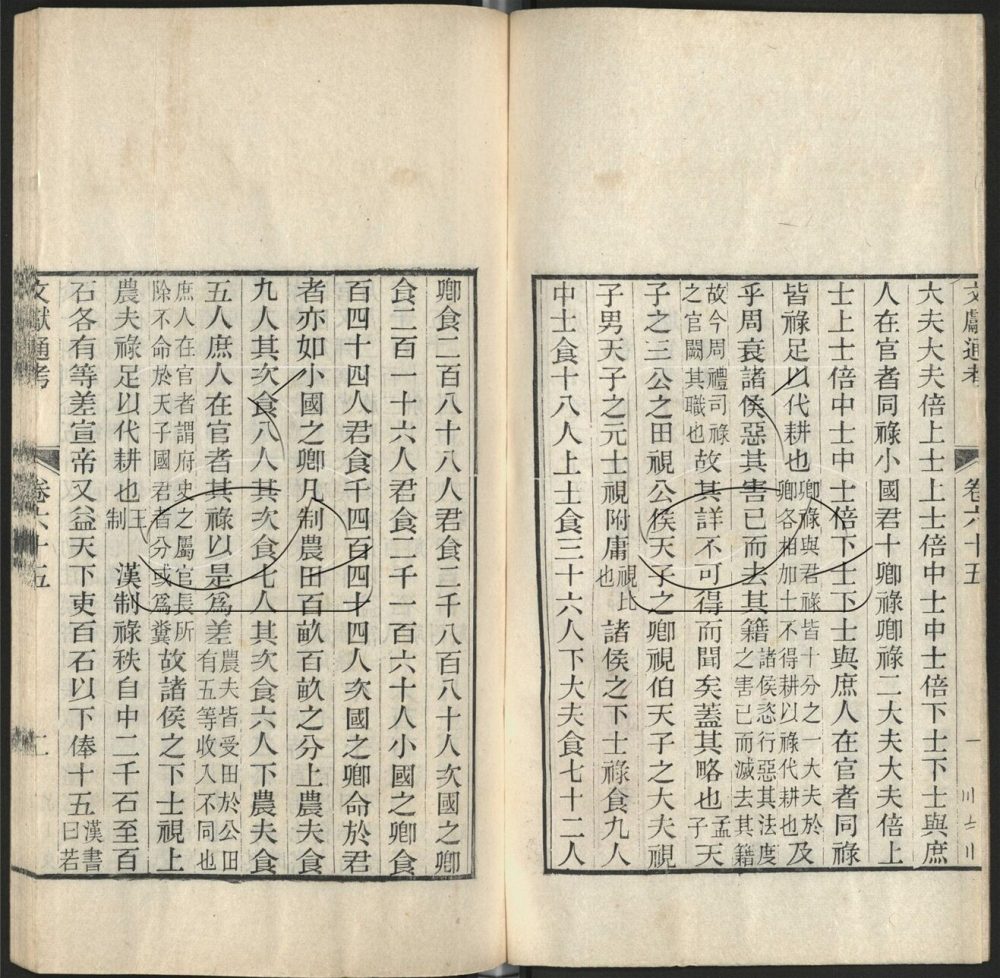 文獻通考　卷六十五　一
大夫大夫倍上士上士倍中士中士倍下士下士與庶
人在官者同祿小國君十卿祿卿祿二大夫大夫倍上
士上士倍中士中士倍下士下士與庶人在官者同祿
皆祿足以代耕也卿祿與君祿皆十分之一大夫於卿各相加士不得耕以祿代耕也及
乎周衰諸侯惡其害己而去其籍諸侯恣行惡其法度之害己而滅去其籍
故今周禮司祿之官闕其職也故其詳不可得而聞矣蓋其略也孟子天
子之三公之田視公侯天子之卿視伯天子之大夫視
子男天子之元士視附庸視比也諸侯之下士祿食九人
中士食十八人上士食三十六人下大夫食七十二人
卿食二百八十八人君食二千八百八十人次國之卿
食二百一十六人君食二千一百六十人小國之卿食
百四十四人君食千四百四十四人次國之卿命於君
者亦如小國之卿凡制農田百畝百畝之分上農夫食
九人其次食八人其次食七人其次食六人下農夫食
五人庶人在官者其祿以是爲差農夫皆受田於公田有五等收入不同也
庶人在官者謂府史之屬官長所除不命於天子國君者分或爲糞故諸侯之下士視上
農夫祿足以代耕也王制　漢制祿秩自中二千石至百
石各有等差宣帝又益天下吏百石以下俸十五漢書曰若
文獻通考　卷六十五　二